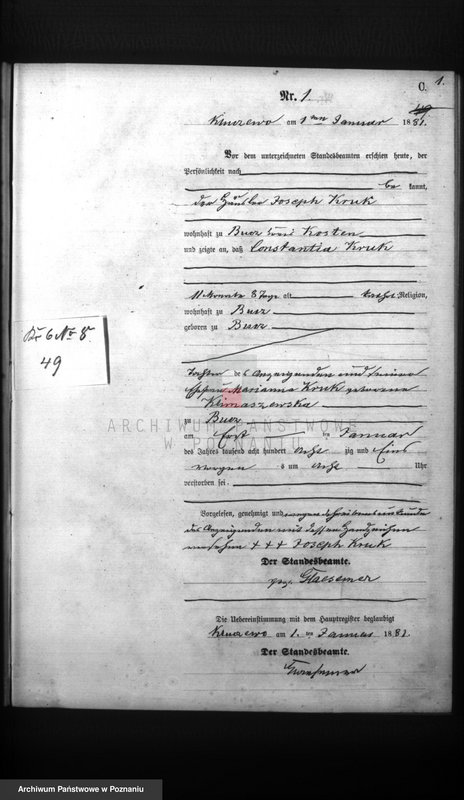 C. 1.
Nr. 1.
am 1 ten Januar 1881.
Vor dem unterzeichneten Standesbeamten erschien heute, der
Persönlichkeit nach
be kannt,
der Häusler Joseph Kruk
wohnhaft zu Bucz Kreis Kosten
und zeigte an, daß Constantia Kruk
11 Monate 8 Tage alt kathol. Religion,
wohnhaft zu Bucz
geboren zu Bucz
No 8
49
Tochter des Anzeigenden und seiner
Ehefrau Marianna Kruk geborene
Klimaszewska
zu Bucz
ARCHIWUM PAŃSTWOWE
W POZNANIU
am Erst ten Januar
des Jahres tausend acht hundert acht zig und Eins
morgens um acht Uhr
verstorben sei.
Vorgelesen, genehmigt und wegen Schreibensunkunde
des Anzeigenden mit dessen Handzeichen
versehen + + + Joseph Kruk
Der Standesbeamte.
gez.
Die Uebereinstimmung mit dem Hauptregister beglaubigt
am 1. ten Januar 1881.
Der Standesbeamte.
Archiwum Państwowe w Poznaniu